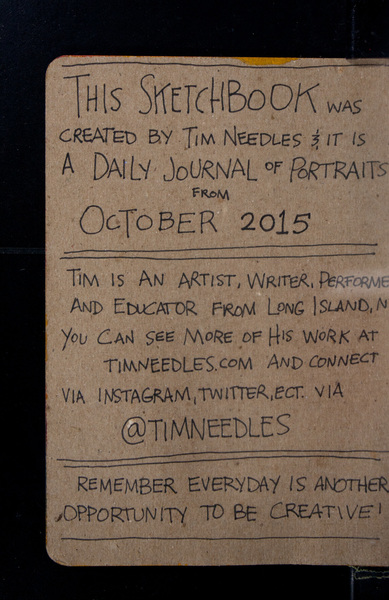 THIS SKETCHBOOK WAS
CREATED BY TIM NEEDLES & IT IS
A DAILY JOURNAL OF PORTRAITS
FROM
OCTOBER 2015
TIM IS AN ARTIST, WRITER, PERFORME
AND EDUCATOR FROM LONG ISLAND, N
YOU CAN SEE MORE OF HIS WORK AT
TIMNEEDLES.COM AND CONNECT
VIA INSTAGRAM, TWITTER, ECT. VIA
@TIMNEEDLES
REMEMBER EVERYDAY IS ANOTHER
OPPORTUNITY TO BE CREATIVE!